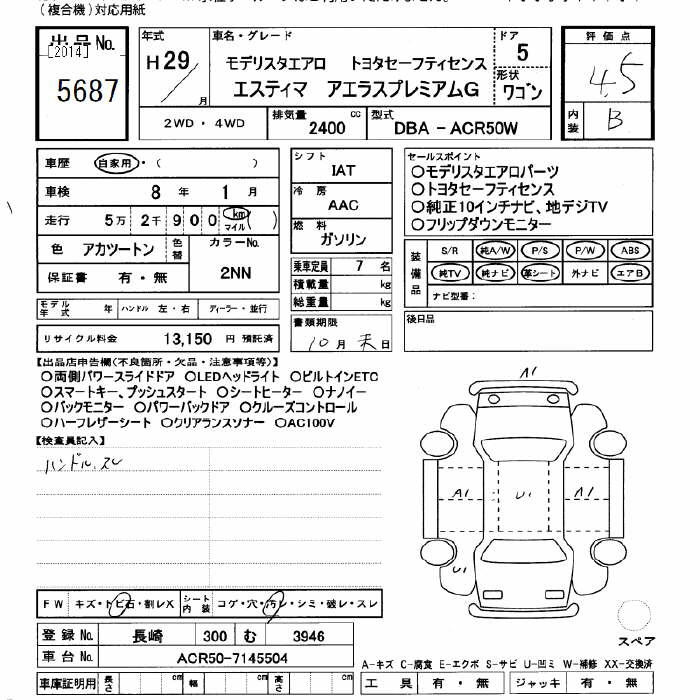 (複合機)対応用紙
出品No.
[2014]
5687
年式
H29/月
車名・グレード
モデリスタエアロ トヨタセーフティセンス
エスティマ アエラスプレミアムG
ドア
5
形状
ワゴン
2WD・4WD
排気量
2400 cc
型式
DBA-ACR50W
評価点
4.5
内装
B
車歴 自家用・( )
車検 8年 1月
走行 5万 2千 900 km マイル ( )
色 アカツートン 色替
カラーNo.
2NN
保証書 有・無
モデル年式 年 ハンドル 左・右 ディーラー・並行
リサイクル料金 13,150 円 預託済
シフト
IAT
冷房
AAC
燃料
ガソリン
乗車定員 7 名
積載量 kg
総重量 kg
書類期限
10月末日
セールスポイント
○モデリスタエアロパーツ
○トヨタセーフティセンス
○純正10インチナビ、地デジTV
○フリップダウンモニター
装備品
S/R 純A/W P/S P/W ABS
純TV 純ナビ 革シート 外ナビ エアB
ナビ型番:
後日品
【出品店申告欄(不良箇所・欠品・注意事項等)】
○両側パワースライドドア ○LEDヘッドライト ○ビルトインETC
○スマートキー、プッシュスタート ○シートヒーター ○ナノイー
○バックモニター ○パワーバックドア ○クルーズコントロール
○ハーフレザーシート ○クリアランスソナー ○AC100V
【検査員記入】
ハンドル、スレ
A1
A1
U1
A1
U1
スペア
FW キズ・トビ石・割レX シート内装 コゲ・穴・汚レ・シミ・破レ・スレ
登録No. 長崎 300 む 3946
車台No. ACR50-7145504
車庫証明用 長さ cm 幅 cm 高さ cm
A-キズ C-腐食 E-エクボ S-サビ U-凹ミ W-補修 XX-交換済
工具 有・無 ジャッキ 有・無